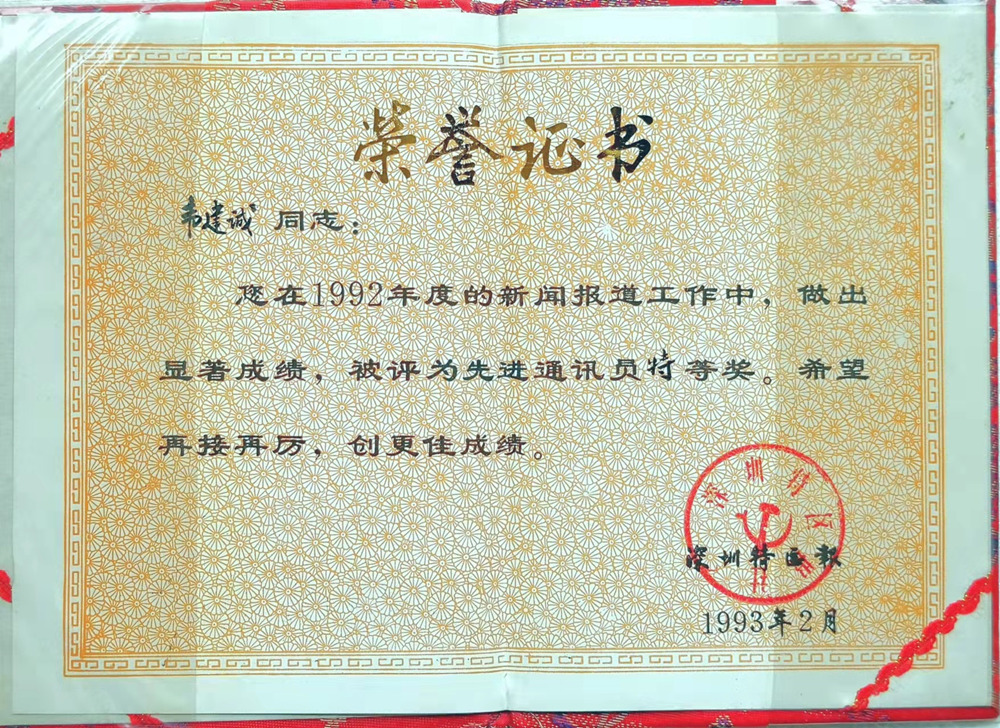 荣誉证书
韦建诚 同志：
您在1992年度的新闻报道工作中，做出
显著成绩，被评为先进通讯员特等奖。希望
再接再厉，创更佳成绩。
深圳特区
深圳特区报
1993年2月